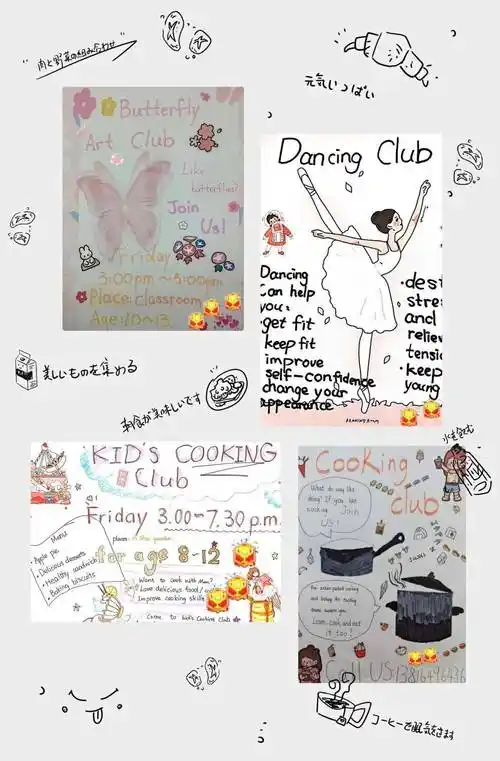 "肉と野菜の組み合わせ"
元気いっぱい
Butterfly
Art Club
Like
butterflies?
Join
Us!
Friday
3:00pm~5:00pm
Place: classroom
Age: 10~13
Dancing Club
Dancing
Can help
you:
·get fit
keep fit
improve
self-confidence
change your
appearance
·dest
stres
and
reliev
tensio
·keep
young
美しいものを集める
朝食が美味しいです
KID'S COOKING
Club
Friday 3.00-7.30 p.m.
place:
for age 8-12
Menu
Apple pie
Delicious desserts
Healthy sandwich
Baking biscuits
Want to cook with Mom?
Love delicious food?
Improve cooking skills
Come to kid's Cooking Club
Cooking
club
What do you like
doing? If you like
cooking, Join
US!
Learn, cook, and eat
it too!
Call US:13816496436
コーヒーで眠気をさます